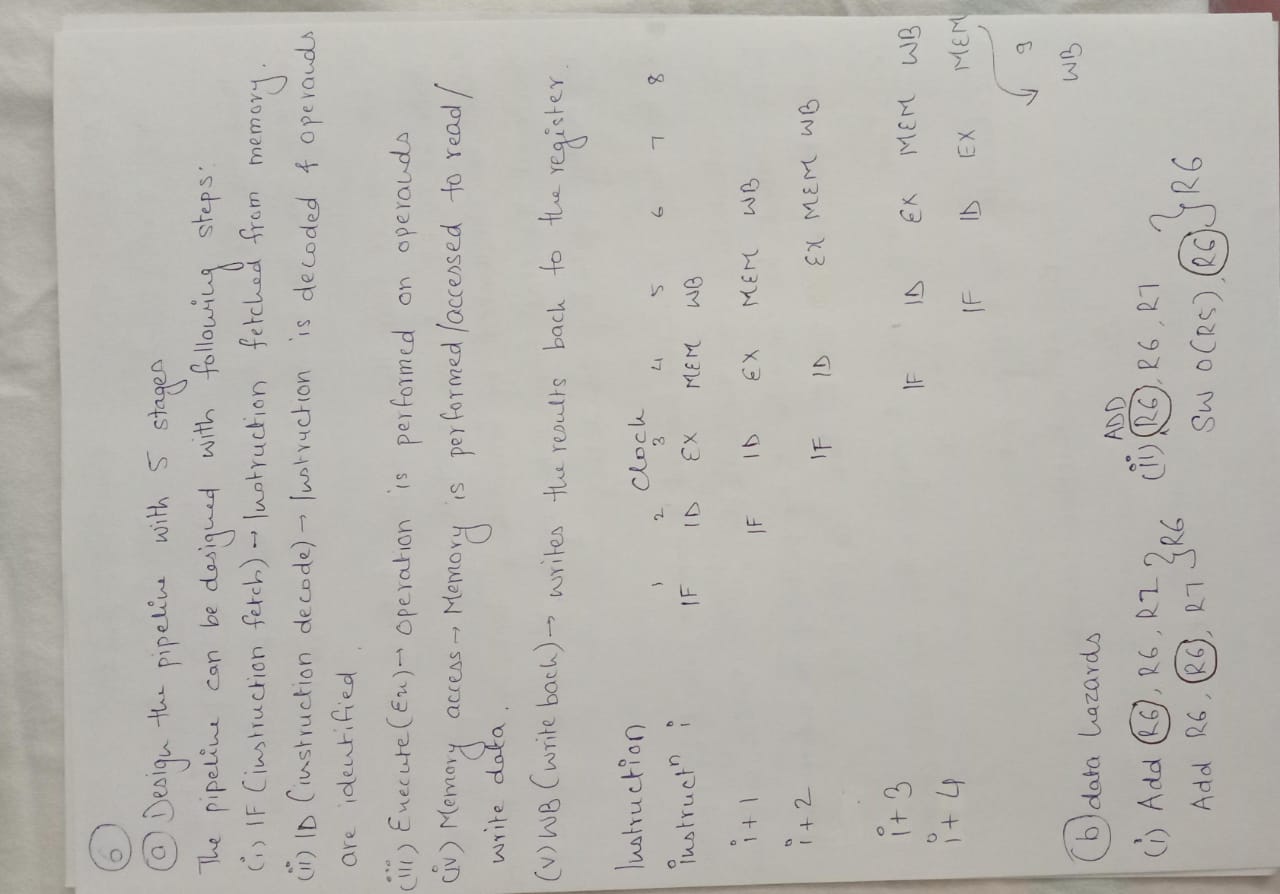 6
(a) Design the pipeline with 5 stages
The pipeline can be designed with following steps:
(i) IF (instruction fetch) → Instruction fetched from memory.
(ii) ID (instruction decode) → Instruction is decoded & operands
are identified.
(iii) Execute (Ex) → operation is performed on operands
(iv) Memory access → Memory is performed/accessed to read/
write data.
(v) WB (write back) → writes the results back to the register.
Instruction Clock
1 2 3 4 5 6 7 8
instructⁿ i IF ID EX MEM WB
i+1 IF ID EX MEM WB
i+2 IF ID EX MEM WB
i+3 IF ID EX MEM WB
i+4 IF ID EX MEM
9
WB
(b) data hazards
ADD
(i) Add R6, R6, R7 } R6 (ii) R6, R6, R7 } R6
Add R6, R6, R7 SW 0(R5), R6